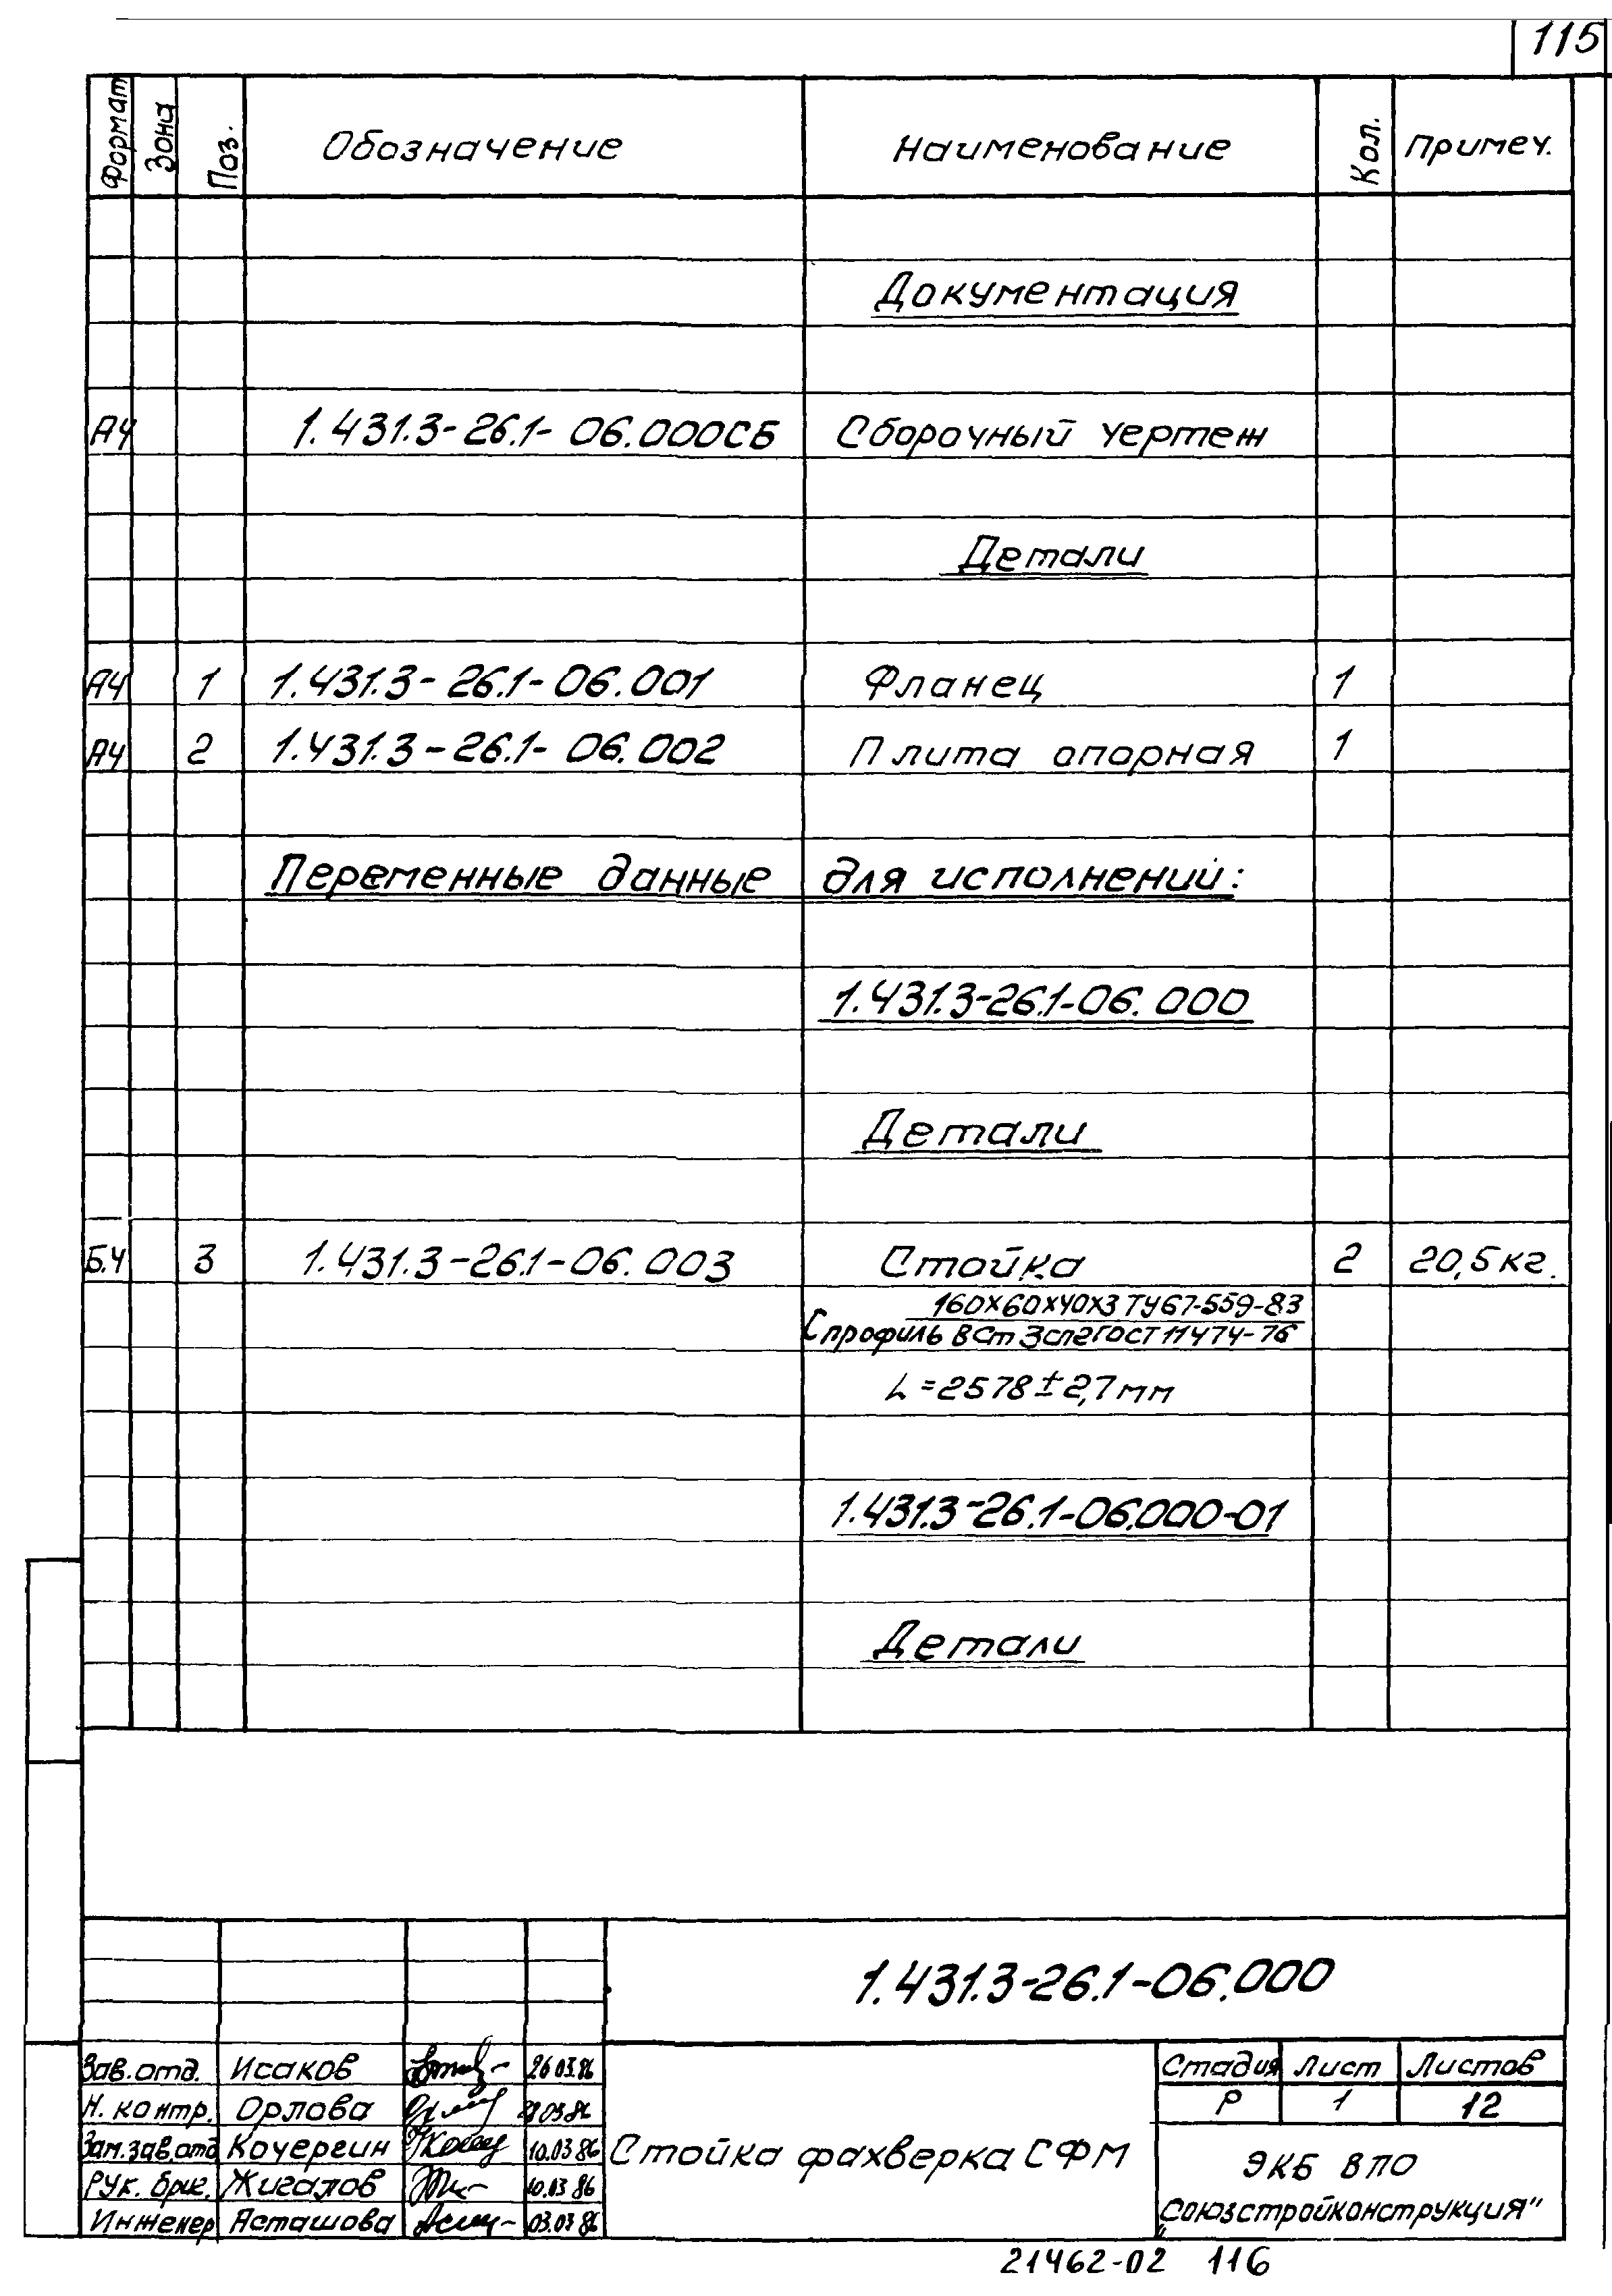 115
Формат Зона Поз. Обозначение Наименование Кол. Примеч.
Документация
А4 1.431.3-26.1-06.000СБ Сборочный чертеж
Детали
А4 1 1.431.3-26.1-06.001 Фланец 1
А4 2 1.431.3-26.1-06.002 Плита опорная 1
Переменные данные для исполнений:
1.431.3-26.1-06.000
Детали
Б.Ч 3 1.431.3-26.1-06.003 Стойка 2 20,5кг.
160х60х40х3 ТУ67-559-83
С профиль ВСт3сп2ГОСТ11474-76
L=2578±2,7мм
1.431.3-26.1-06.000-01
Детали
1.431.3-26.1-06.000
Зав.отд. Исаков 26.03.86
Н. контр. Орлова 03.86
Зам.зав.отд Кочергин 10.03.86
Рук. бриг. Жигалов 10.03.86
Инженер Асташова 03.03.86
Стойка фахверка СФМ
Стадия Лист Листов
Р 1 12
ЭКБ ВПО
„Союзстройконструкция"
21462-02 116